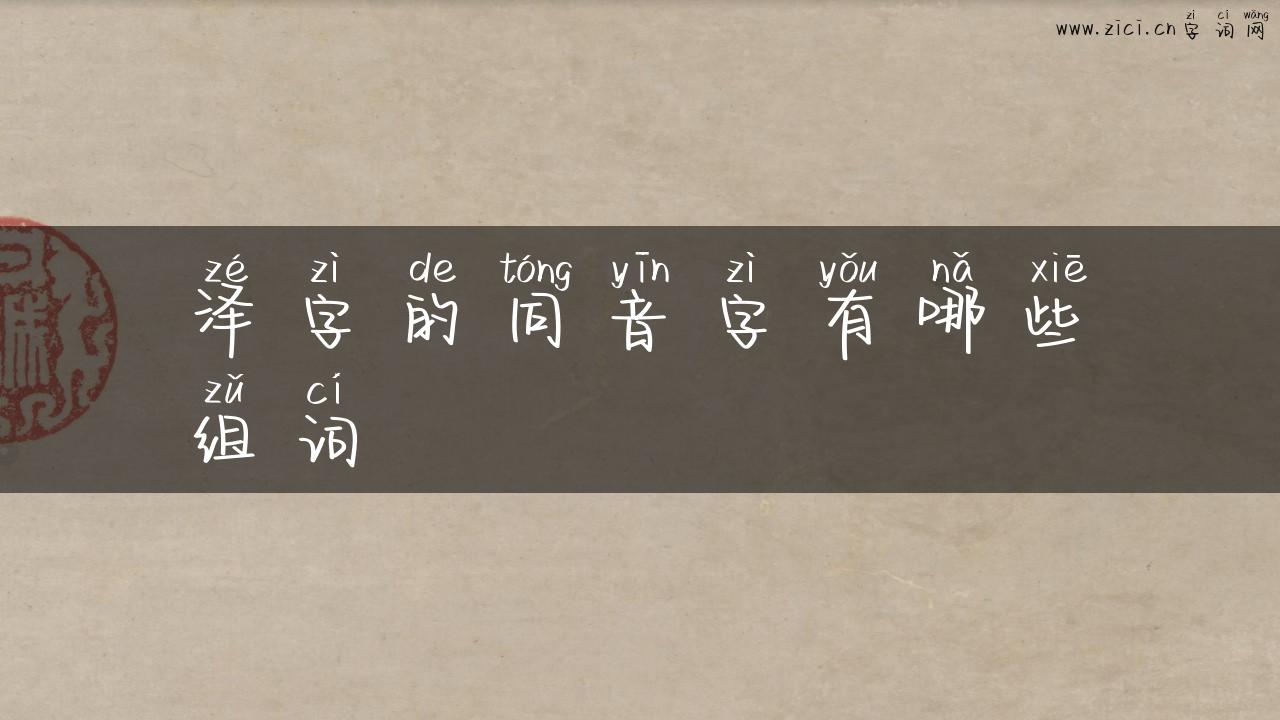 zì cí wǎng
www.zici.cn 字词网
zé zì de tóng yīn zì yǒu nǎ xiē
泽字的同音字有哪些
zǔ cí
组词